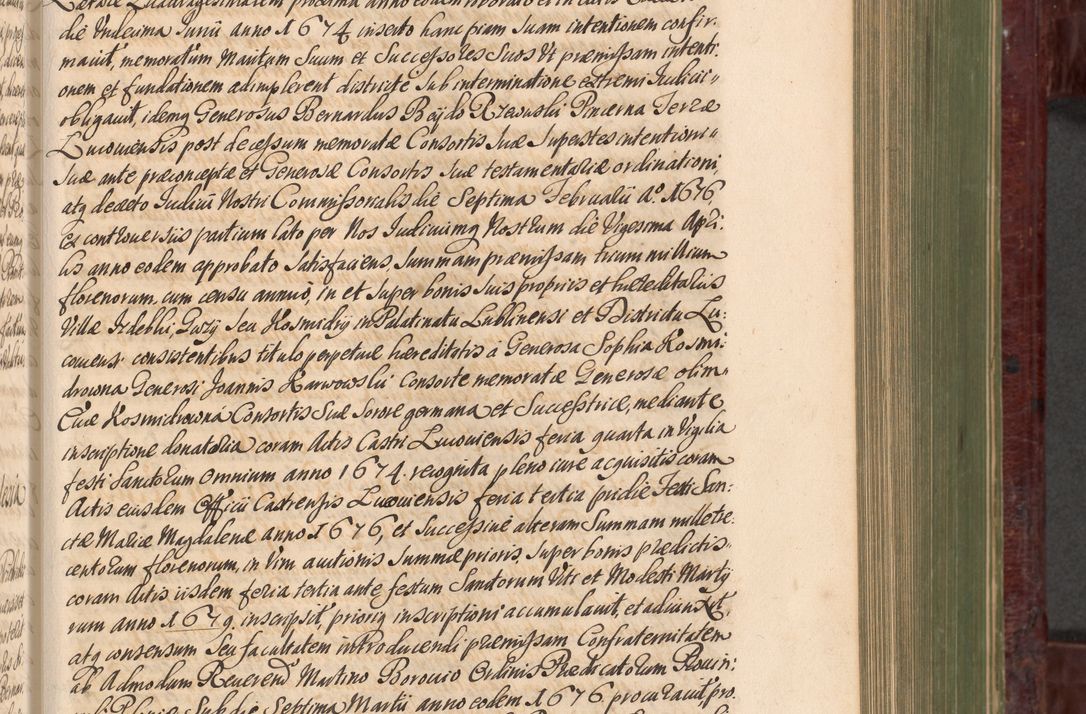 die Undecima Junii anno 1674 inserto hanc piam suam intentionem confir:
mauit, memoratum Maritum Suum et Successores Suos Ut præmissam intenti:
onem et fundationem adimplerent districte sub interminatione extremi Judicii
obligauit, idemq Generosus Bernardus Beydo Rzewuski Pincerna Terræ
Lucouiensis post decessum memoratæ Consortis Suæ Superstes intentioni
Suæ ante præconceptæ et Generosæ Consortis suæ testamentariæ ordinationi,
atq decreto Iudicii Nostri Commissorialis die Septima Februarii Aº. 1676,
Ex controuersiis partium lato per Nos Iudiciumq Nostrum die Vigesima Apri:
lis anno eodem approbato Satisfaciens, Summam præmissam trium millium
florenorum, cum censu annuo, in et super bonis suis propriis et hæreditariis
Villæ Izdebki, Guzy Seu Kosmidry in Palatinatu Lublinensi et Districtu Lu:
couiensi consistentibus titulo perpetuæ hæreditatis á Generosa Sophia Kosmi:
drowna Generosi Joannis Karwowski Consorte memoratæ Generosæ olim
Euæ Kosmidrowna Consortis Suæ Sorore germana et Successtrice, mediante
inscriptione donatoria coram Actis Castri Lucouiensis feria quarta in Vigilia
festi Sanctorum Omnium anno 1674. recognita pleno iure acquisitis coram
Actis eiusdem Officii Castrensis Lucouiensis feria tertia pridie Festi San:
ctæ Mariæ Magdalenæ anno 1676, et successiuè alteram Summam mille tre:
centorum florenorum, in Vim auctionis Summæ prioris, super bonis prædictis
coram Actis iisdem feria tertia ante festum Sanctorum Viti et Modesti Marty
rum anno 1679. inscripsit, prioriq inscriptioni accumulauit, et adiunxit,
atq consensum Seu facultatem introducendi præmissam Confraternitatem
ab Admodum Reuerend Martino Borouio Ordinis Prædicatorum Prouin:
Sub die Septima Martii anno eodem 1676 procurauit, pro.